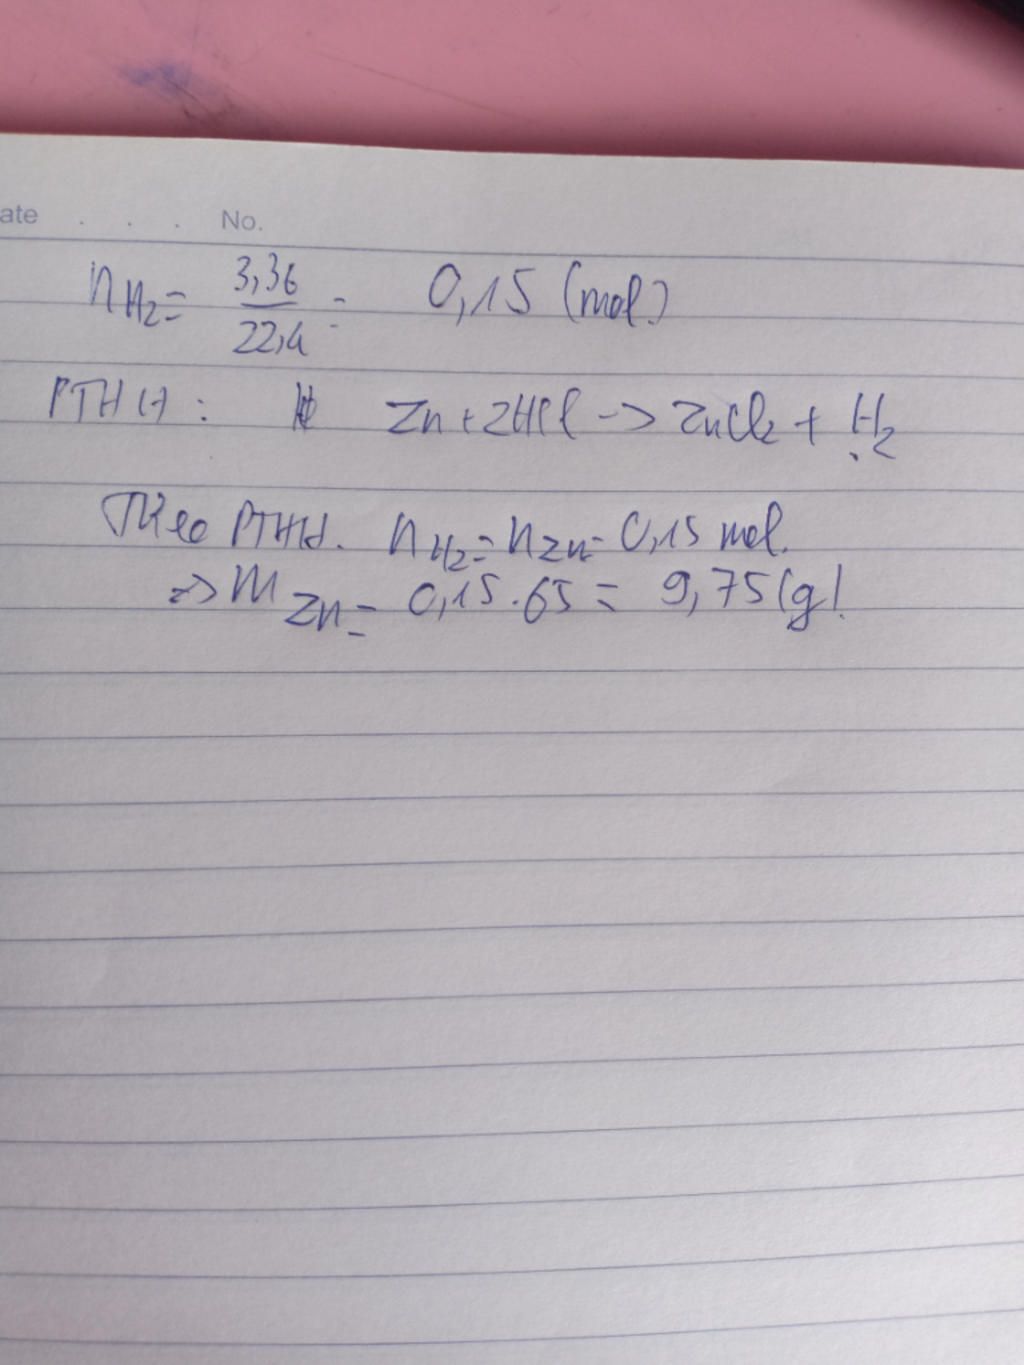 ate . . . No.
nH₂ = 3,36 / 22,4 = 0,15 (mol)
PTHH : Zn + 2HCl -> ZnCl₂ + H₂
Theo PTHH. nH₂ = nZn = 0,15 mol.
=> mZn = 0,15 . 65 = 9,75 (g).